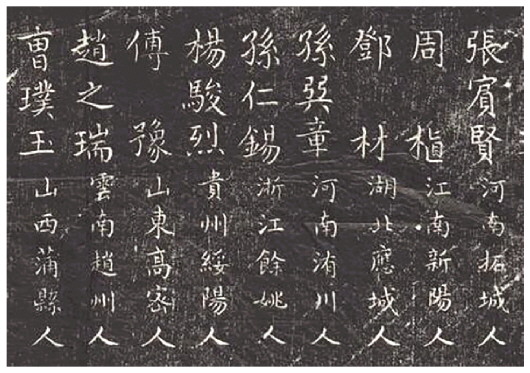 張賓賢河南拓城人
周江南新陽人
鄧材湖北應城人
孫巽章河南洧川人
孫仁錫浙江餘姚人
楊駿烈貴州綏陽人
傅豫山東高密人
趙之瑞雲南趙州人
曹璞玉山西蒲縣人